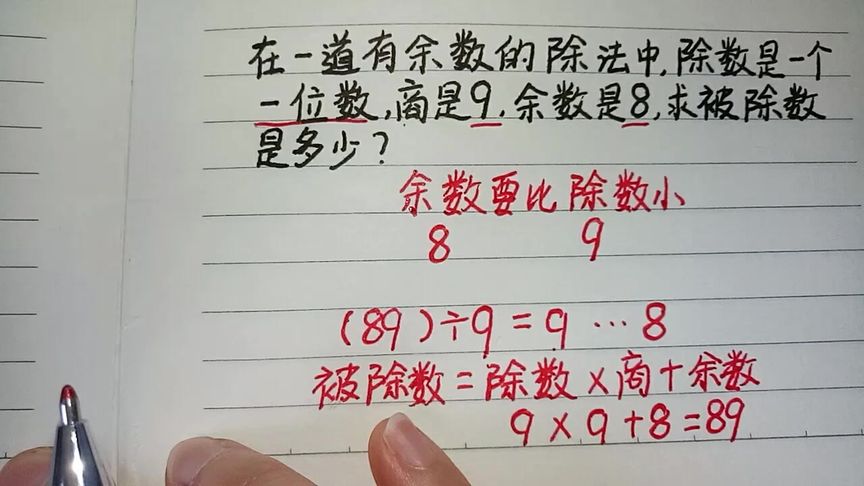 在一道有余数的除法中,除数是一个
一位数,商是9,余数是8,求被除数
是多少?
余数要比除数小
8 9
(89)÷9=9…8
被除数=除数×商+余数
9×9+8=89